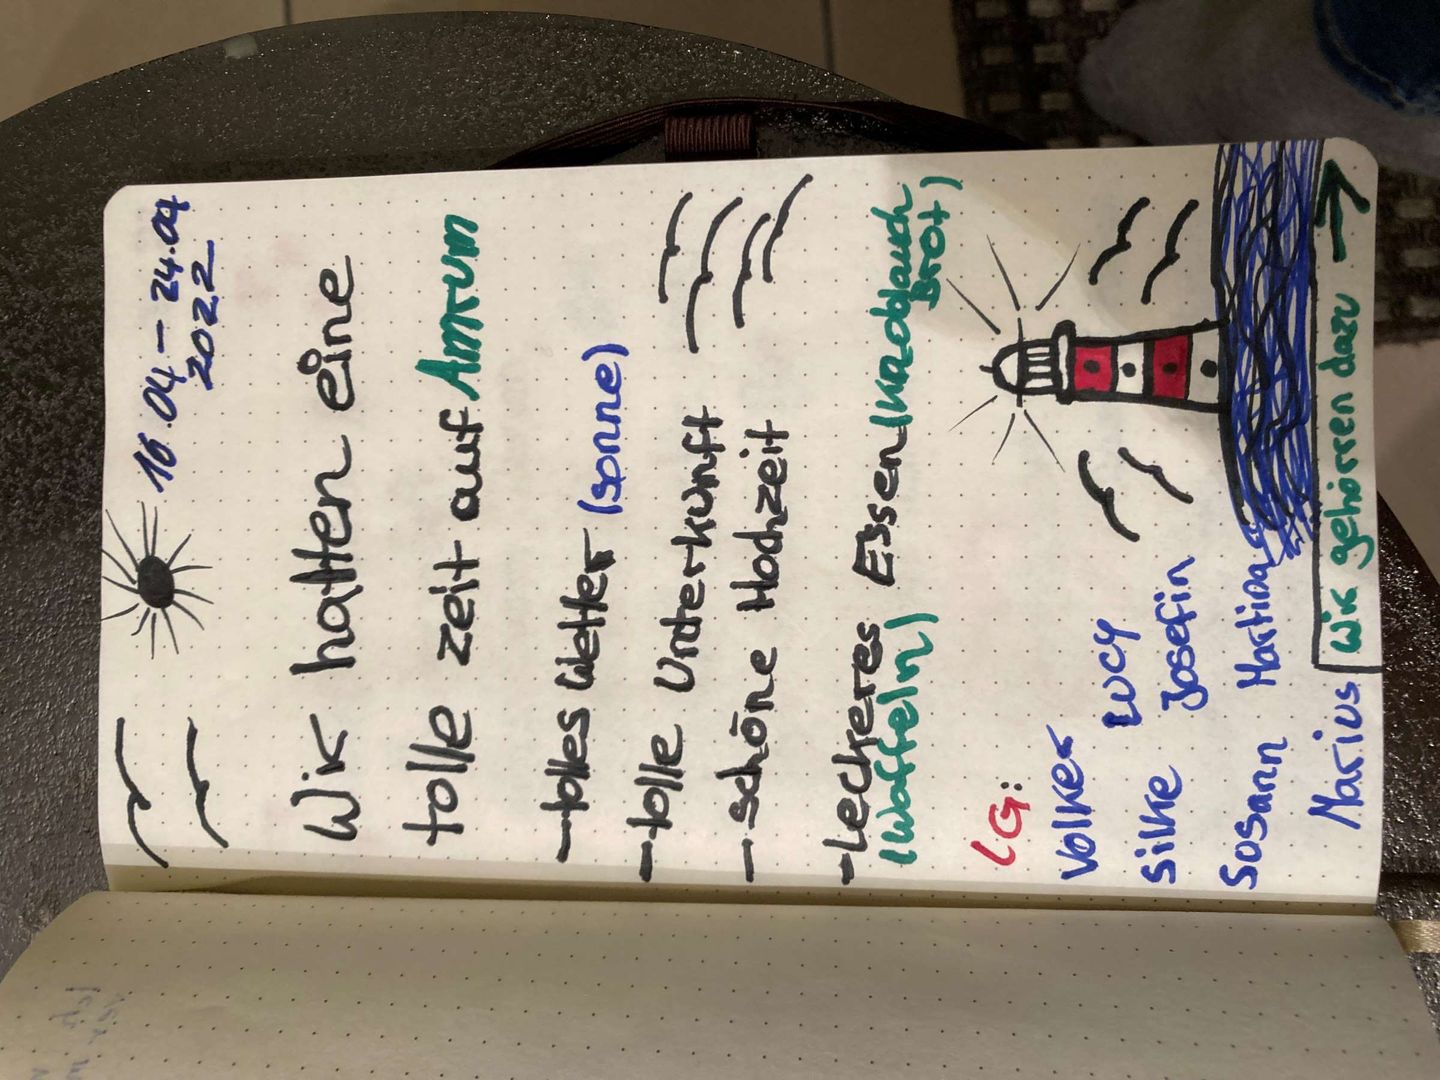 16.04 – 24.04
2022
Wir hatten eine
tolle zeit auf Amrum
- tolles Wetter (sonne)
- tolle Unterkunft
- schöne Hochzeit
- Leckeres Essen (Knoblauch
Brot)
(Waffeln)
LG:
Volker Lucy
Silke Josefin
Sosann Martina
Marius
Wir gehörren dazu →